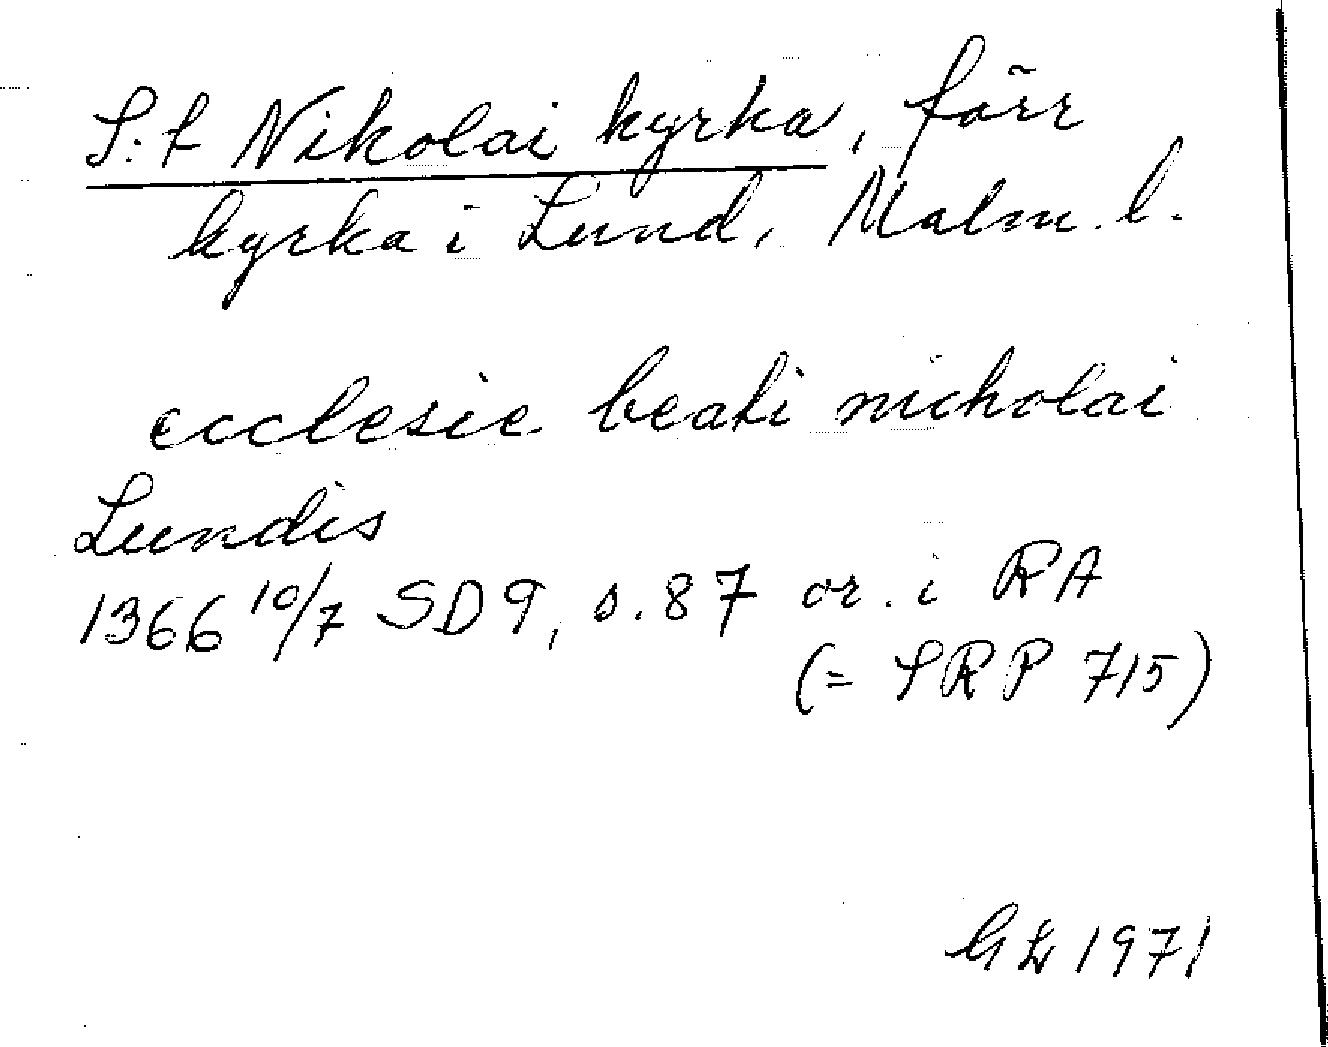 S:t Nikolai kyrka, förr
kyrka i Lund, Malm. l.
ecclesie beati nicholai
Lundis
1366 10/7 SD 9, s. 87 or. i RA
(= SRP 715)
1971